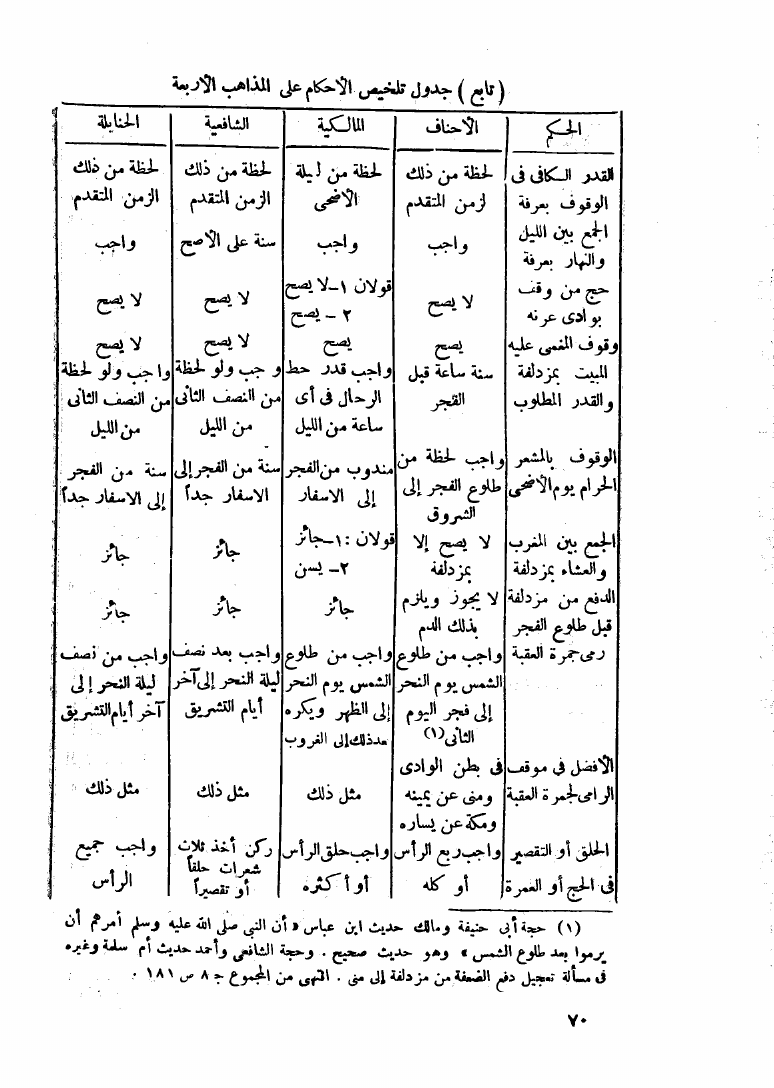 ( تابع ) جدول تلخيص الأحكام على المذاهب الأربعة
الحكم | الأحناف | المالكية | الشافعية | الحنابلة
القدر الكافى فى | لحظة من ذلك | لحظة من ليلة | لحظة من ذلك | لحظة من ذلك
الوقوف بعرفة | لزمن المتقدم | الأضحى | الزمن المتقدم | الزمن المتقدم
الجمع بين الليل
والنهار بعرفة | واجب | واجب | سنة على الأصح | واجب
حج من وقف | لا يصح | قولان ١-لا يصح | لا يصح | لا يصح
بوادى عرنه | ٢ - يصح
وقوف المغمى عليه | يصح | يصح | لا يصح | لا يصح
المبيت بمزدلفة | سنة ساعة قبل | واجب قدر حط | و جب ولو لحظة | واجب ولو لحظة
والقدر المطلوب | الفجر | الرحال فى أى | من النصف الثانى | من النصف الثانى
ساعة من الليل | من الليل | من الليل
الوقوف بالمشعر | واجب لحظة من | مندوب من الفجر | سنة من الفجر إلى | سنة من الفجر
الحرام يوم الأضحى | طلوع الفجر إلى | إلى الاسفار | الاسفار جداً | إلى الاسفار جداً
الشروق
الجمع بين المغرب | لا يصح إلا | قولان : ١-جائز | جائز | جائز
والعشاء بمزدلفة | بمزدلفة | ٢- يسن
الدفع من مزدلفة | لا يجوز ويلزم | جائز | جائز | جائز
قبل طلوع الفجر | بذلك الدم
رمى جمرة العقبة | واجب من طلوع | واجب من طلوع | واجب بعد نصف | واجب من نصف
الشمس يوم النحر | الشمس يوم النحر | ليلة النحر إلى آخر | ليلة النحر إلى
إلى فجر اليوم | إلى الظهر ويكره | أيام التشريق | آخر أيام التشريق
الثانى (١) | بعد ذلك إلى الغروب
الأفضل فى موقف | فى بطن الوادى
الرامى لجمرة العقبة | ومنى عن يمينه | مثل ذلك | مثل ذلك | مثل ذلك
ومكة عن يساره
الحلق أو التقصير | واجب ربع الرأس | واجب حلق الرأس | ركن أخذ ثلاث | واجب جميع
فى الحج أو العمرة | أو كله | أو أكثره | شعرات حلقاً | الرأس
أو تقصيراً
(١) حجة أبى حنيفة ومالك حديث ابن عباس « أن النبى صلى الله عليه وسلم أمرهم أن
يرموا بعد طلوع الشمس » وهو حديث صحيح . وحجة الشافعى وأحمد حديث أم سلمة وغيره
فى مسألة تعجيل دفع الضعفة من مزدلفة إلى منى . انتهى من المجموع ج ٨ ص ١٨١ .
٧٠